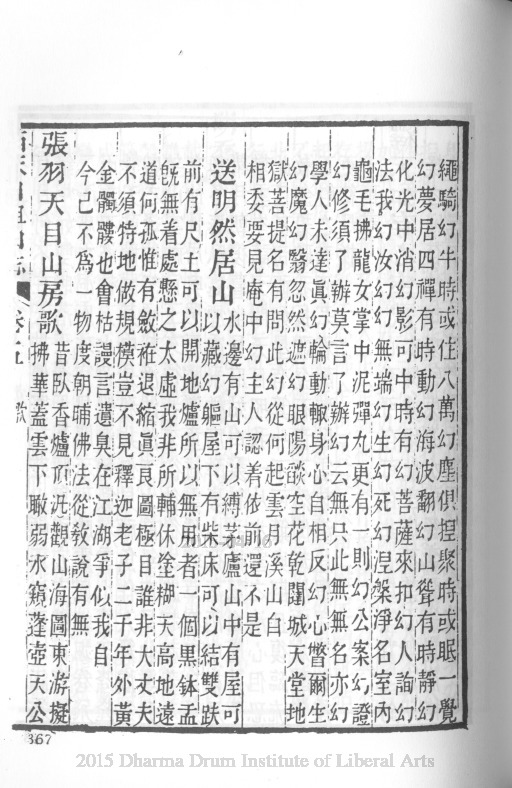 繩騎幻牛時或住八萬幻塵俱捏聚時或眠一覺
幻夢居四禪有時動幻海波翻幻山聳有時靜幻
化光中消幻影可中時有幻菩薩來扣幻人詢幻
法我幻汝幻幻無端幻生幻死幻涅槃淨名室內
龜毛拂龍女掌中泥彈丸更有一則幻公案幻證
幻修須了辦莫言了辦幻云無只此無無名亦幻
學人未達眞幻輪動輙身心自相反幻心瞥爾生
幻魔幻翳忽然遮幻眼陽燄空花乾闥城天堂地
獄菩提名有問此幻從何起雲月溪山白
相委要見庵中幻主人認着依前還不是
送明然居山 水邊有山可以縛茅廬山中有屋可
以藏幻軀屋下有柴床可以結雙趺
前有尺土可以開地爐所以無用者一個黑鉢盂
旣無着處懸之太虛我非所輔休塗糊天高地遠
道何孤惟有斂祚退縮眞良圖極目誰非大丈夫
不須特地做規模豈不見釋迦老子二千年外黃
金髑髏也會枯謾言遺臭在江湖爭似我自
今己不爲一物度朝晡佛法從敎說有無
張羽天目山房歌 昔臥香爐頂汎觀山海圖東游擬
拂華蓋雲下瞰弱水窺蓬壺天公
目山 志 卷五 歌
367
2015 Dharma Drum Institute of Liberal Arts